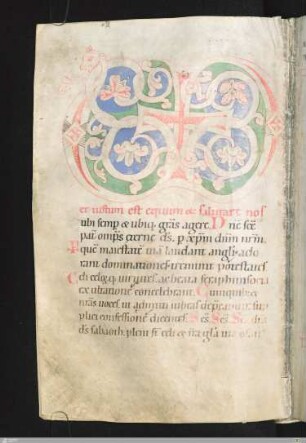 et iustum est equum & salutare nos
tibi semp & ubiq; gras agere. Dne sce
pat omps eterne ds. p xpm dnm nrm.
Per quē maiestatē tuā laudant angli ado
rant dominationes tremunt potestates
Celi celoq; uirtutes ac beata seraphin socia
exultatione concelebrant. Cum quibus et
nras uoces ut admitti iubeas deprecamur sup
plici confessione dicentes. Scs. Scs. Scs. dns
ds sabaoth. pleni st celi et tra gla tua osan